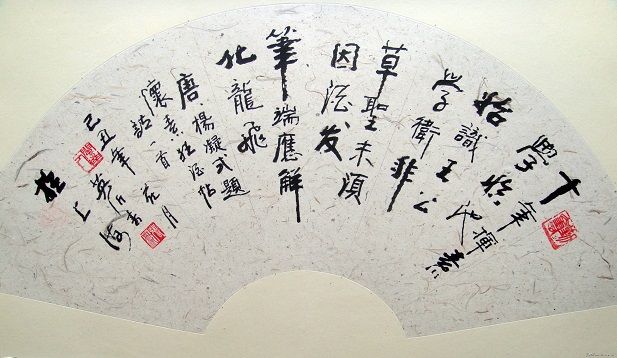 十年揮素
學臨池
始識王公
學衛非
草聖未須
因酒發
筆端應解
化龍飛
唐楊凝式題
懷素狂酒帖
詩一首
己丑年
於上海